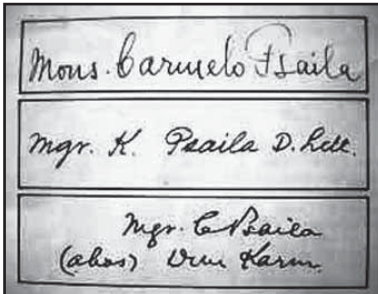 Mons. Carmelo Psaila
Mgr. K. Psaila D. Litt.
Mgr. C Psaila
(alias) Dun Karm